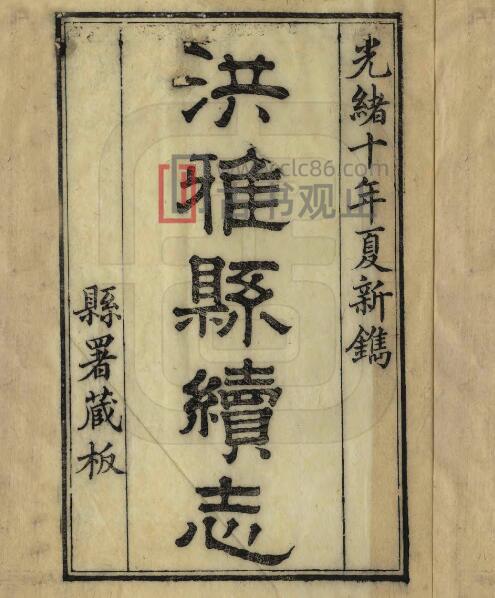 光緒十年夏新鐫
洪雅縣續志
縣署蔵板
clc86.com
书观止